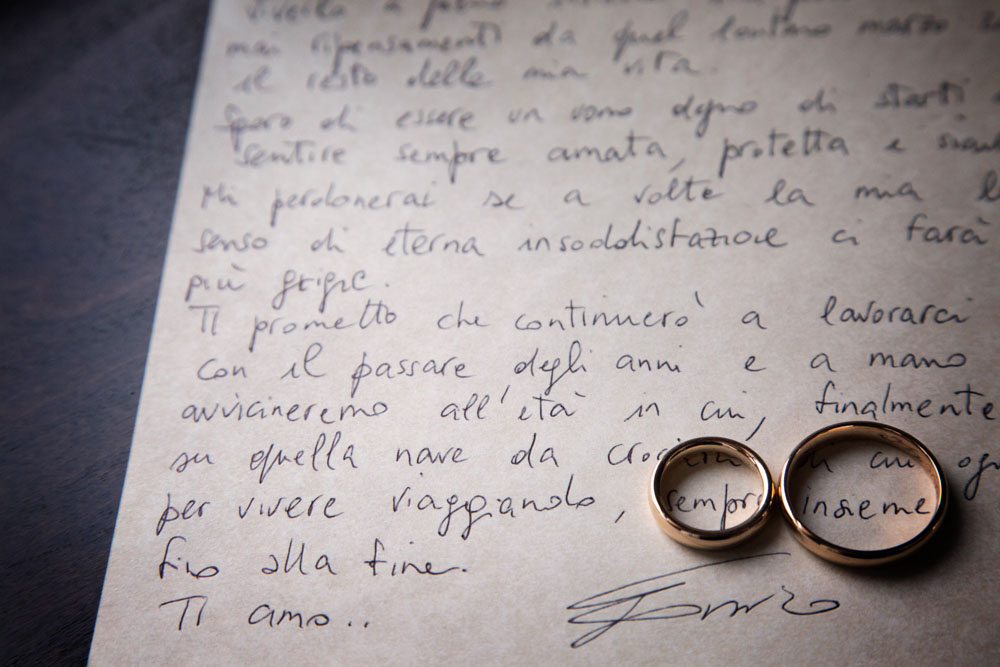 mai ripensamenti da quel lontano marzo
il resto delle mia vita.
Spero di essere un uomo degno di starti
sentire sempre amata, protetta e
Mi perdonerai se a volte la mia
senso di eterna insoddisfazione ci farà
più grigie.
Ti prometto che continuerò a lavorarci
con il passare degli anni e a mano
avvicineremo all'età in cui, finalmente
su quella nave da crociera di cui
per vivere viaggiando, sempre insieme
fino alla fine.
Ti amo..